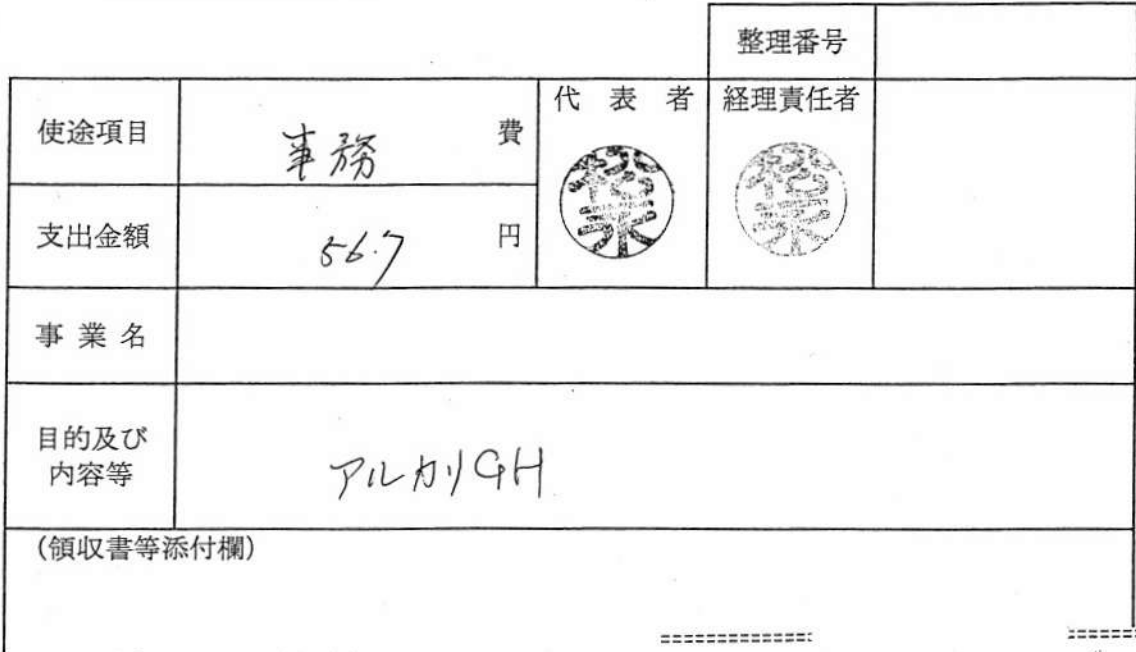 整理番号
使途項目 事務 費 代表者 経理責任者
松永 松永
支出金額 567 円
事業名
目的及び
内容等
アルカリGH
(領収書等添付欄)